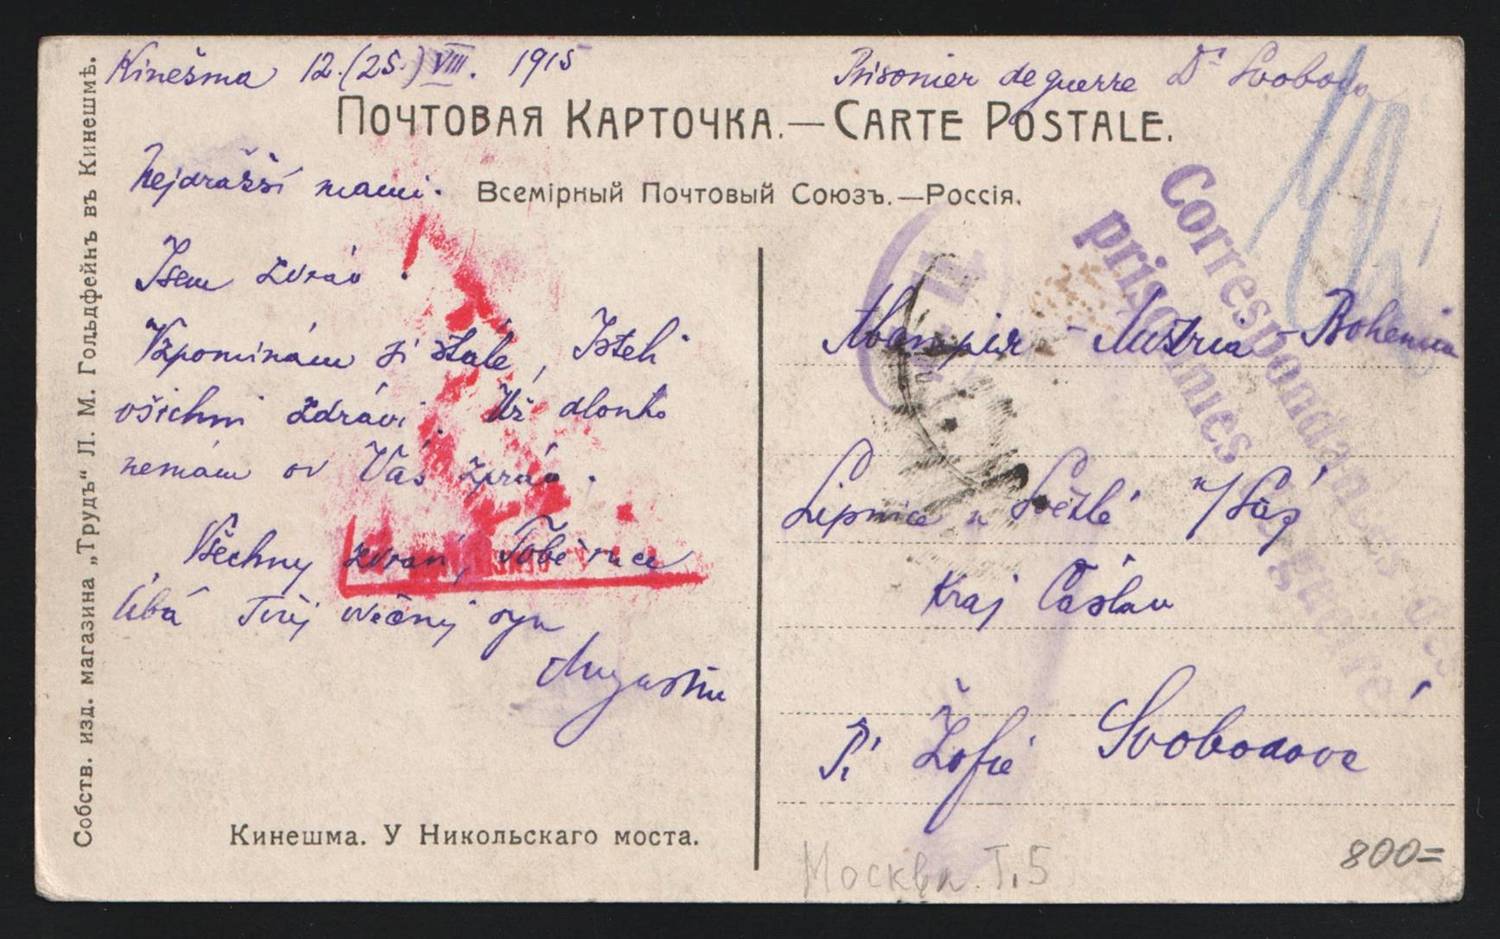 Kinešma 12.(25.) VIII. 1915
Prisonier de guerre Dr Svoboda
ПОЧТОВАЯ КАРТОЧКА.—CARTE POSTALE.
Всемірный Почтовый Союзъ.—Россія.
Nejdražší mami.
Jsem zdráv.
Vzpomínám si stále, Jsteli
všichni zdrávi. Už dlouho
nemám od Vás zpráv.
Všechny zdraví, Tobě ruce
líbá Tvůj vděčný syn
Augustin
Correspondances des
prisonniers de guerre
Austria - Bohemia
Lipnice u Světlé n/Sáz
Kraj Čáslav
Pí Žofie Svobodová
Кинешма. У Никольскаго моста.
Собств. изд. магазина „Трудъ“ Л. М. Гольдфейнъ въ Кинешмѣ.
Москва. Т. 5
800=